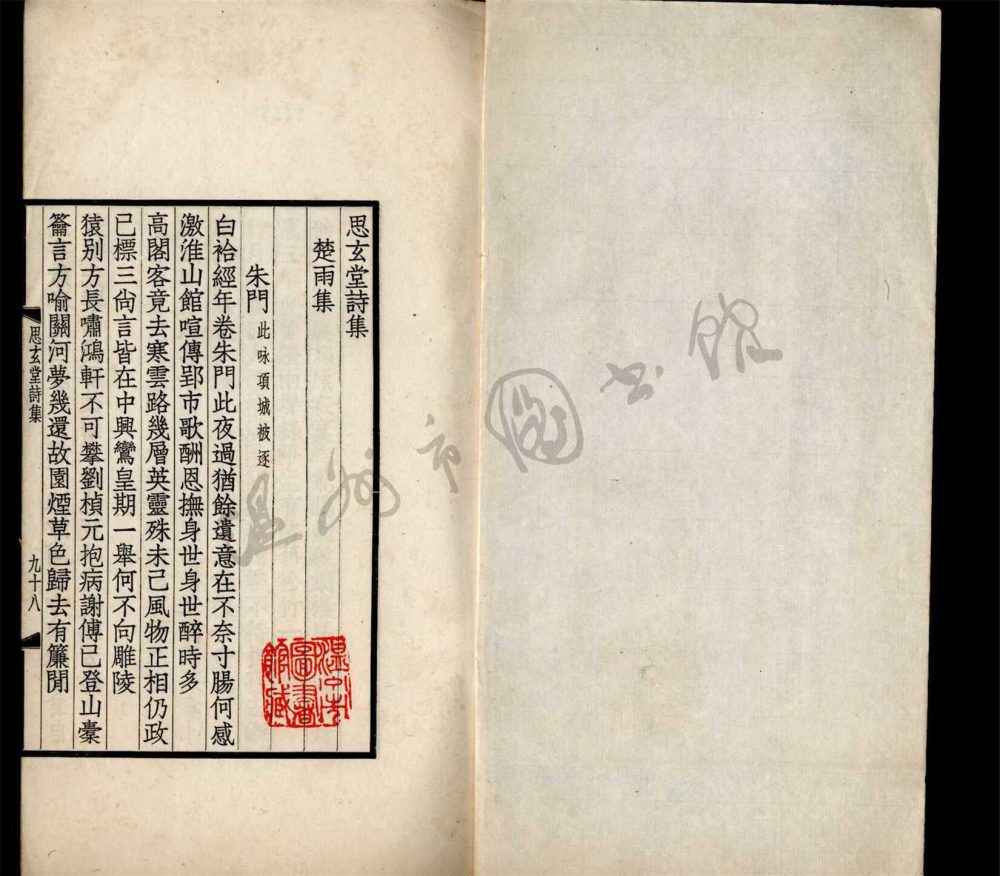 思玄堂詩集
楚雨集
朱門 此咏項城被逐
白袷經年卷朱門此夜過猶餘遺意在不奈寸腸何感
激淮山館喧傳郢市歌酬恩撫身世身世醉時多
高閣客竟去寒雲路幾層英靈殊未已風物正相仍政
已標三尙言皆在中興鸞皇期一舉何不向雕陵
猿别方長嘯鴻軒不可攀劉楨元抱病謝傅已登山橐
籥言方喻關河夢幾還故園煙草色歸去有簾閒
思玄堂詩集
九十八
溫州市
圖書
館藏
溫州市圖书館